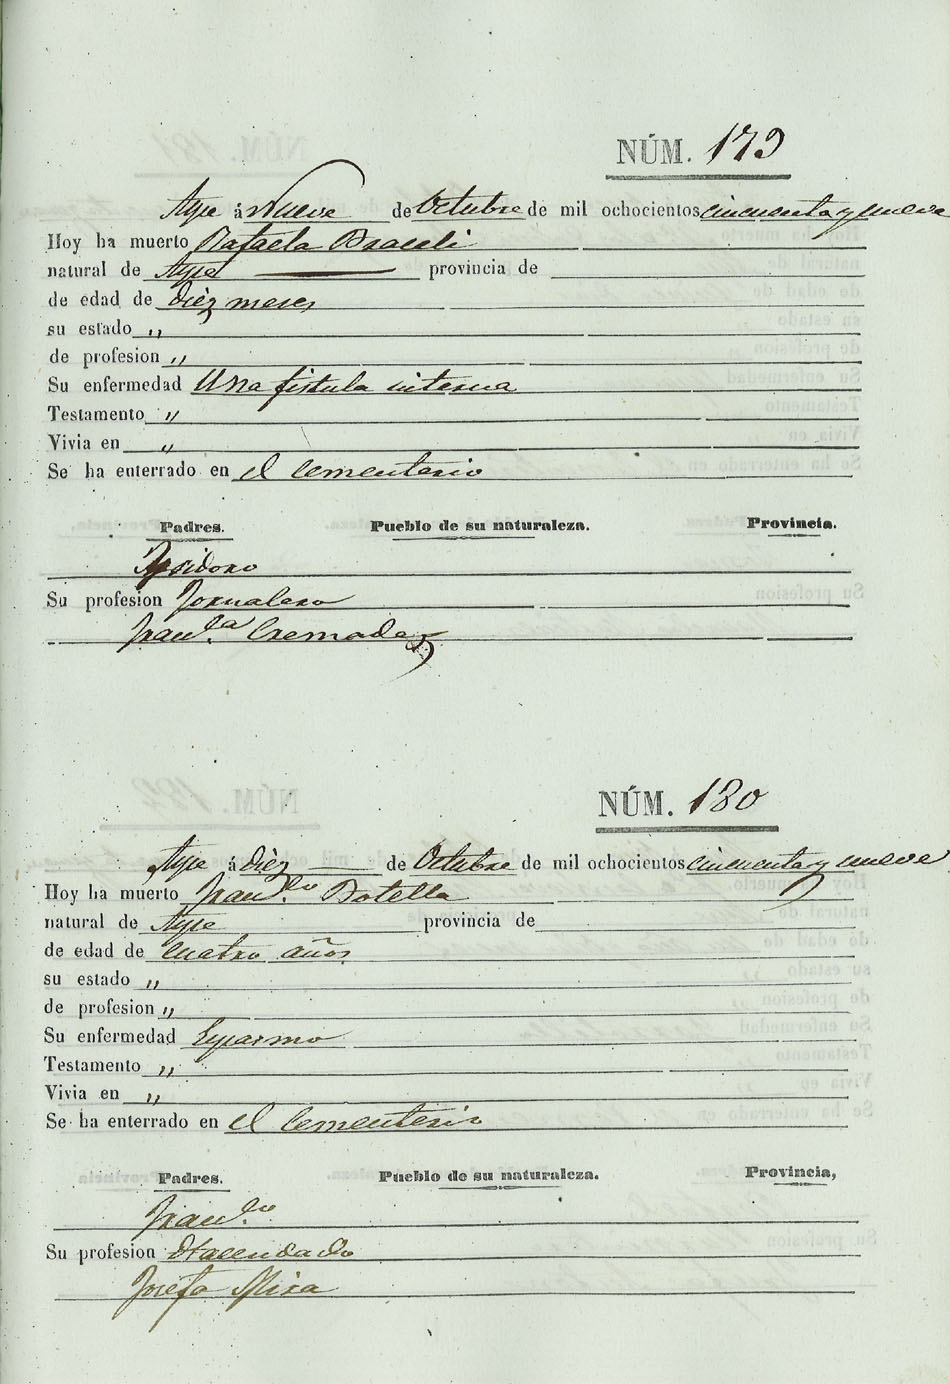 NÚM. 179
Aspe á Nueve de Octubre de mil ochocientos cincuenta y nueve
Hoy ha muerto Rafaela Braceli
natural de Aspe provincia de
de edad de diez meses
su estado „
de profesion „
Su enfermedad Una fistula interna
Testamento „
Vivia en „
Se ha enterrado en el Cementerio
Padres. Pueblo de su naturaleza. Provincia.
Ysidoro
Su profesion Jornalero
Fran.ca Cremades
NÚM. 180
Aspe á diez de Octubre de mil ochocientos cincuenta y nueve
Hoy ha muerto Fran.co Botella
natural de Aspe provincia de
de edad de cuatro años
su estado „
de profesion „
Su enfermedad Espasmo
Testamento „
Vivia en „
Se ha enterrado en el Cementerio
Padres. Pueblo de su naturaleza. Provincia,
Fran.co
Su profesion Hacendado
Josefa Mira